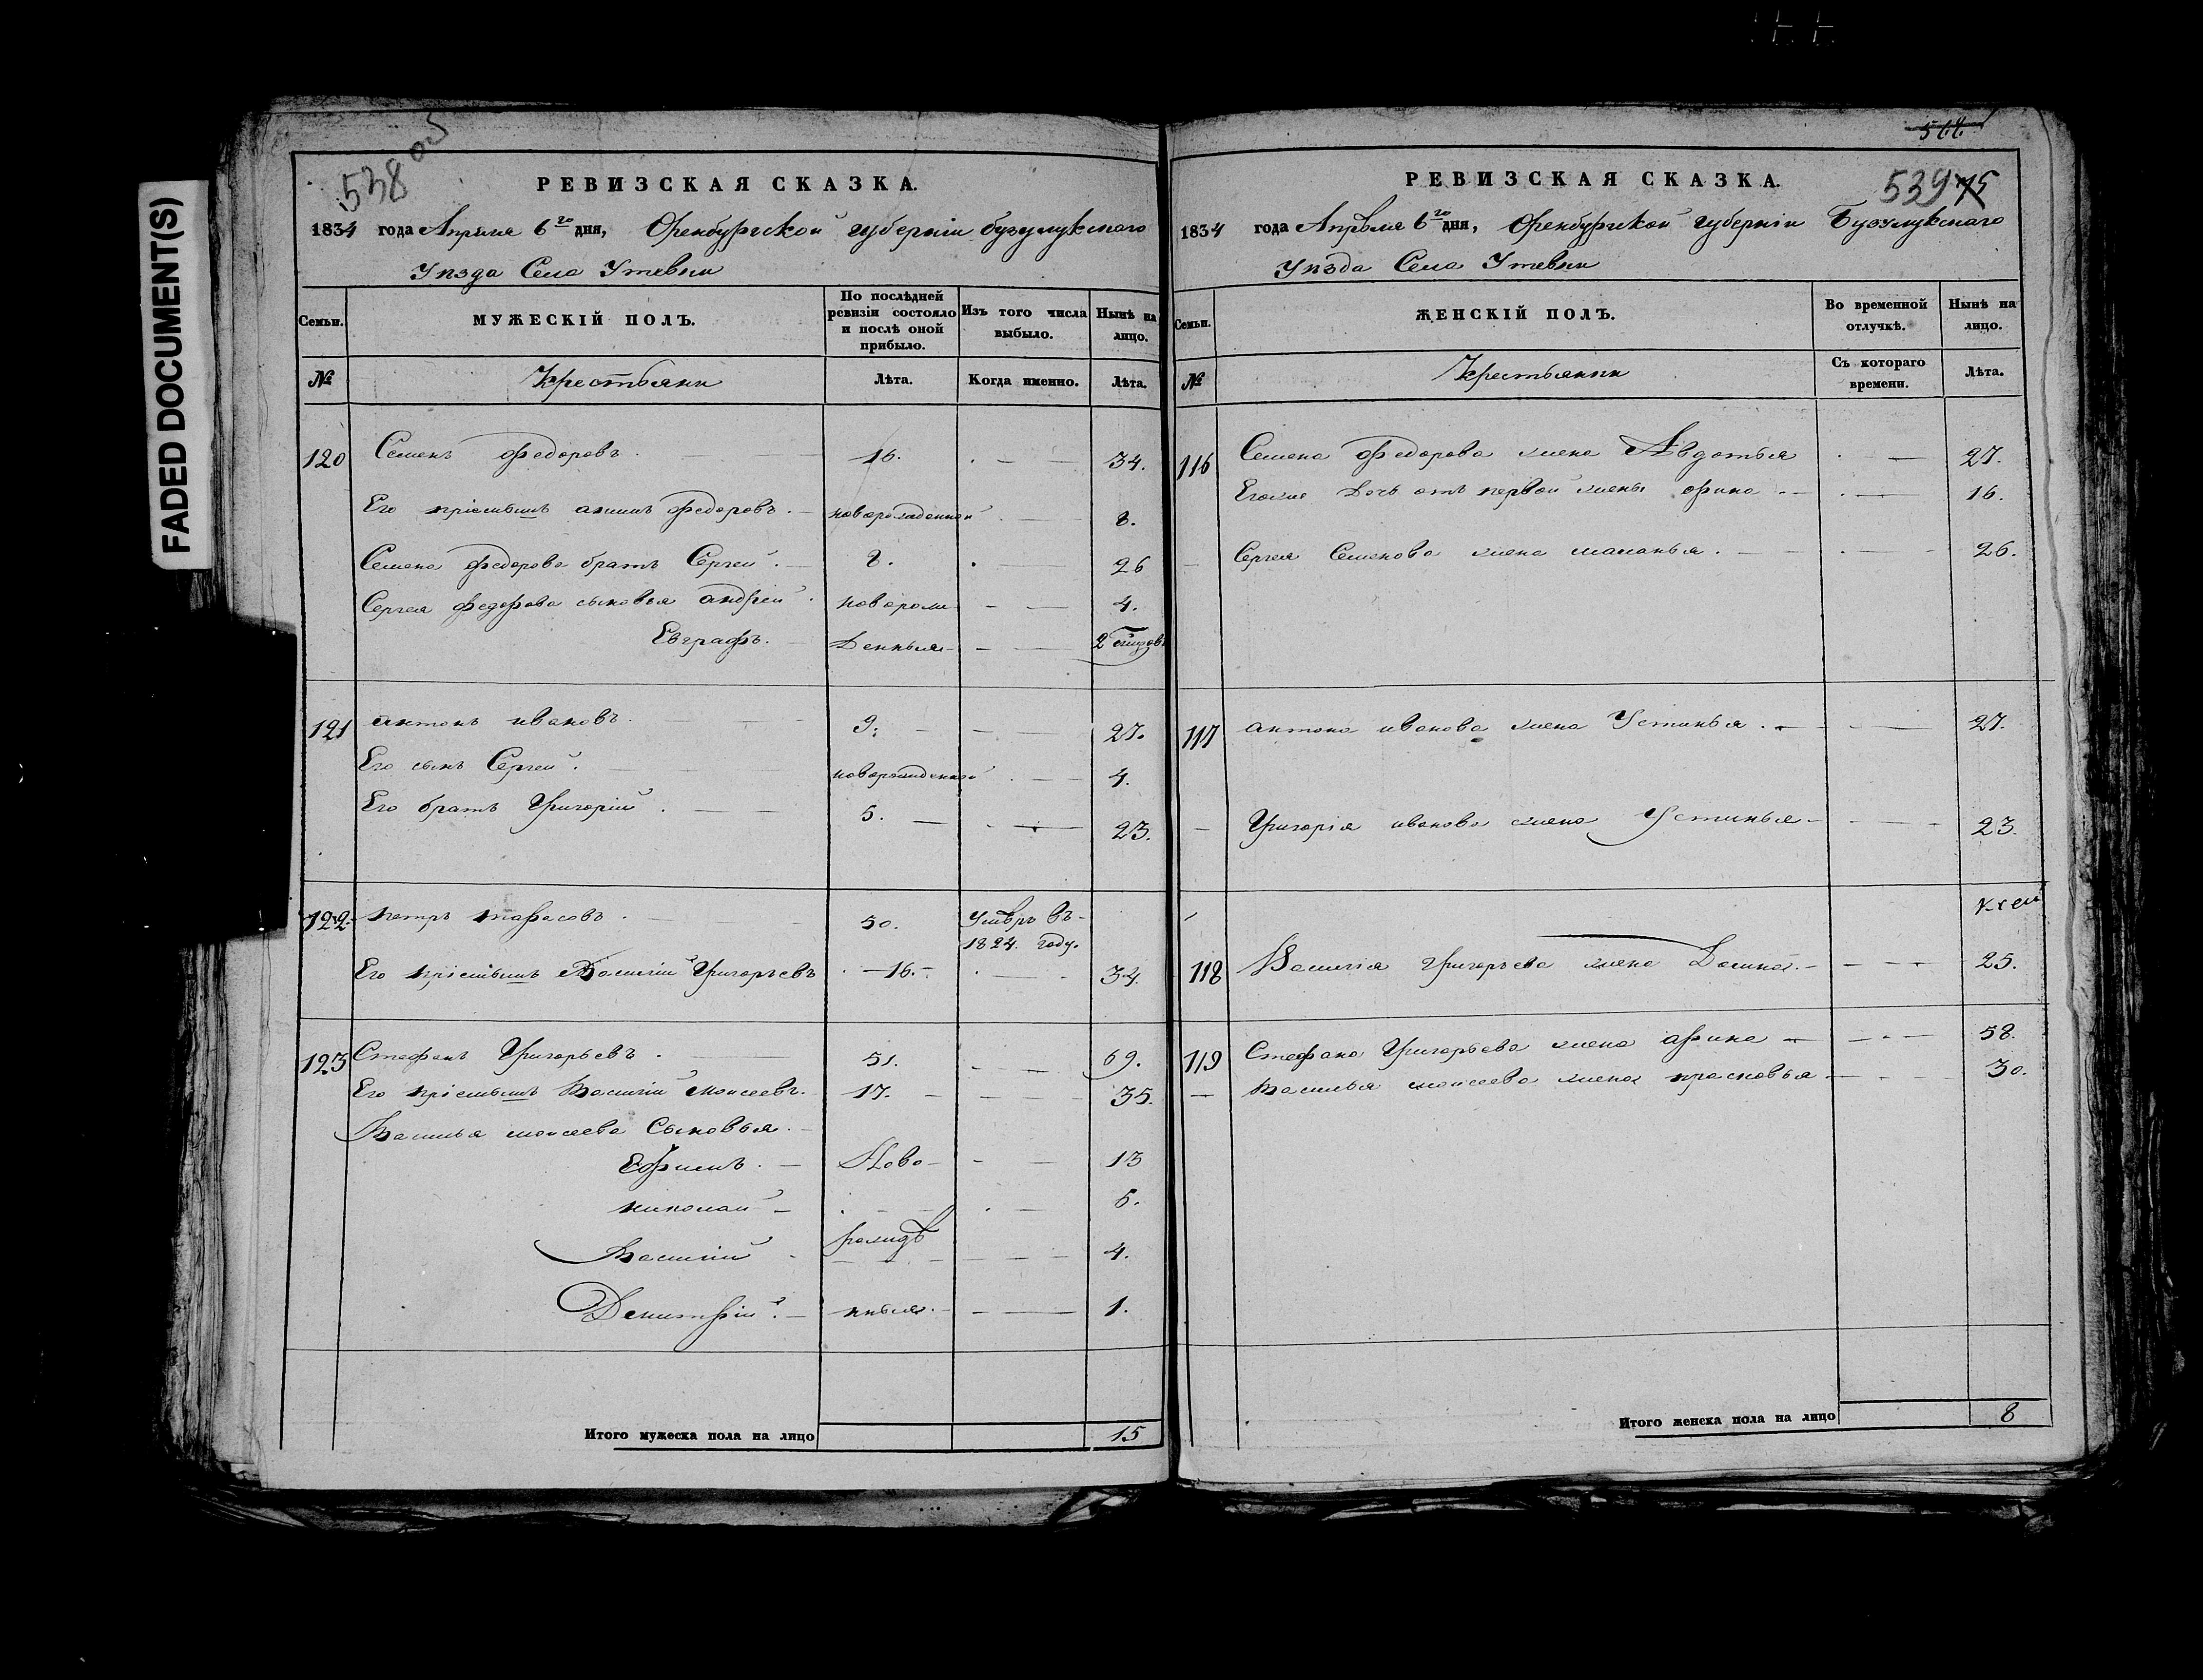 FADED DOCUMENT(S)
538
РЕВИЗСКАЯ СКАЗКА.
1834 года Апреля 6го дня, Оренбургской губерніи бузулукскаго
Уѣзда Села Утевки
Семьи.
МУЖЕСКІЙ ПОЛЪ.
По послѣдней ревизіи состояло и послѣ оной прибыло.
Изъ того числа выбыло.
Нынѣ на лицо.
№
Крестьяни
Лѣта.
Когда именно.
Лѣта.
120 Семенъ Федоровъ. 16. 34.
Его пріемышъ Федоровъ. новорожденной 8.
Семена Федорова братъ Сергей. 8. 26
Сергея Федорова сыновья андрей новорож 4.
Евграфъ. денныя 2
121 антонъ ивановъ. 9. 27.
Его сынъ Сергей. новорожденной 4.
Его братъ Григорій. 5. 23.
122 петръ тарасовъ. 50. Умѣръ въ
1824. году.
Его пріемышъ Василій Григорьевъ 16. 34.
123 Стефанъ Григорьевъ. 51. 69.
Его пріемышъ Василій моисеевъ. 17. 35.
Василья моисеева Сыновья.
Ефимъ. Ново 13
николай 6.
Василій рожде 4.
Демитрій. нныя. 1.
Итого мужеска пола на лицо 15
568
539
РЕВИЗСКАЯ СКАЗКА.
1834 года Апрѣля 6го дня, Оренбургской губерніи Бузулукскаго
Уѣзда Села Утевки
Семьи.
ЖЕНСКІЙ ПОЛЪ.
Во временной отлучкѣ.
Нынѣ на лицо.
№
Крестьянки
Съ котораго времени.
Лѣта.
116 Семена Федорова жена Авдотья 27.
Егоже дочь отъ первой жены 16.
Сергея Семенова жена маланья. 26.
117 антона иванова жена Устинья. 27.
Григорія иванова жена Устинья 23.
118 Василія Григорьева жена 25.
119 Стефана Григорьева жена арина 58.
Василья моисеева жена прасковья 30.
Итого женска пола на лицо 8